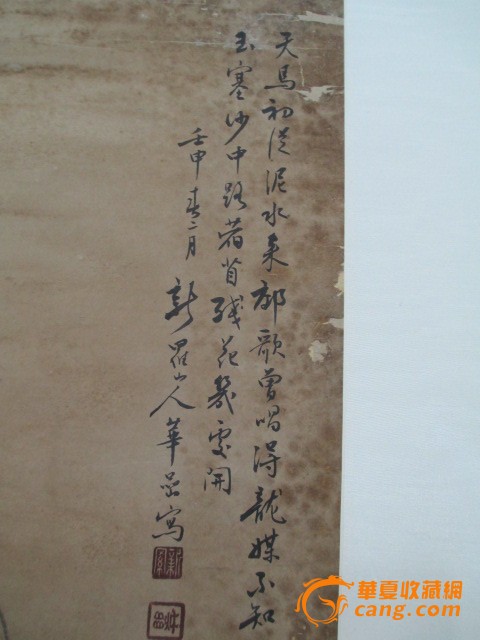 天馬初從泥水来郊歌曾唱得龍媒不知
玉塞沙中路苜殘花幾處開
壬申春二月
新羅山人華喦寫
華夏收藏網
cang.com